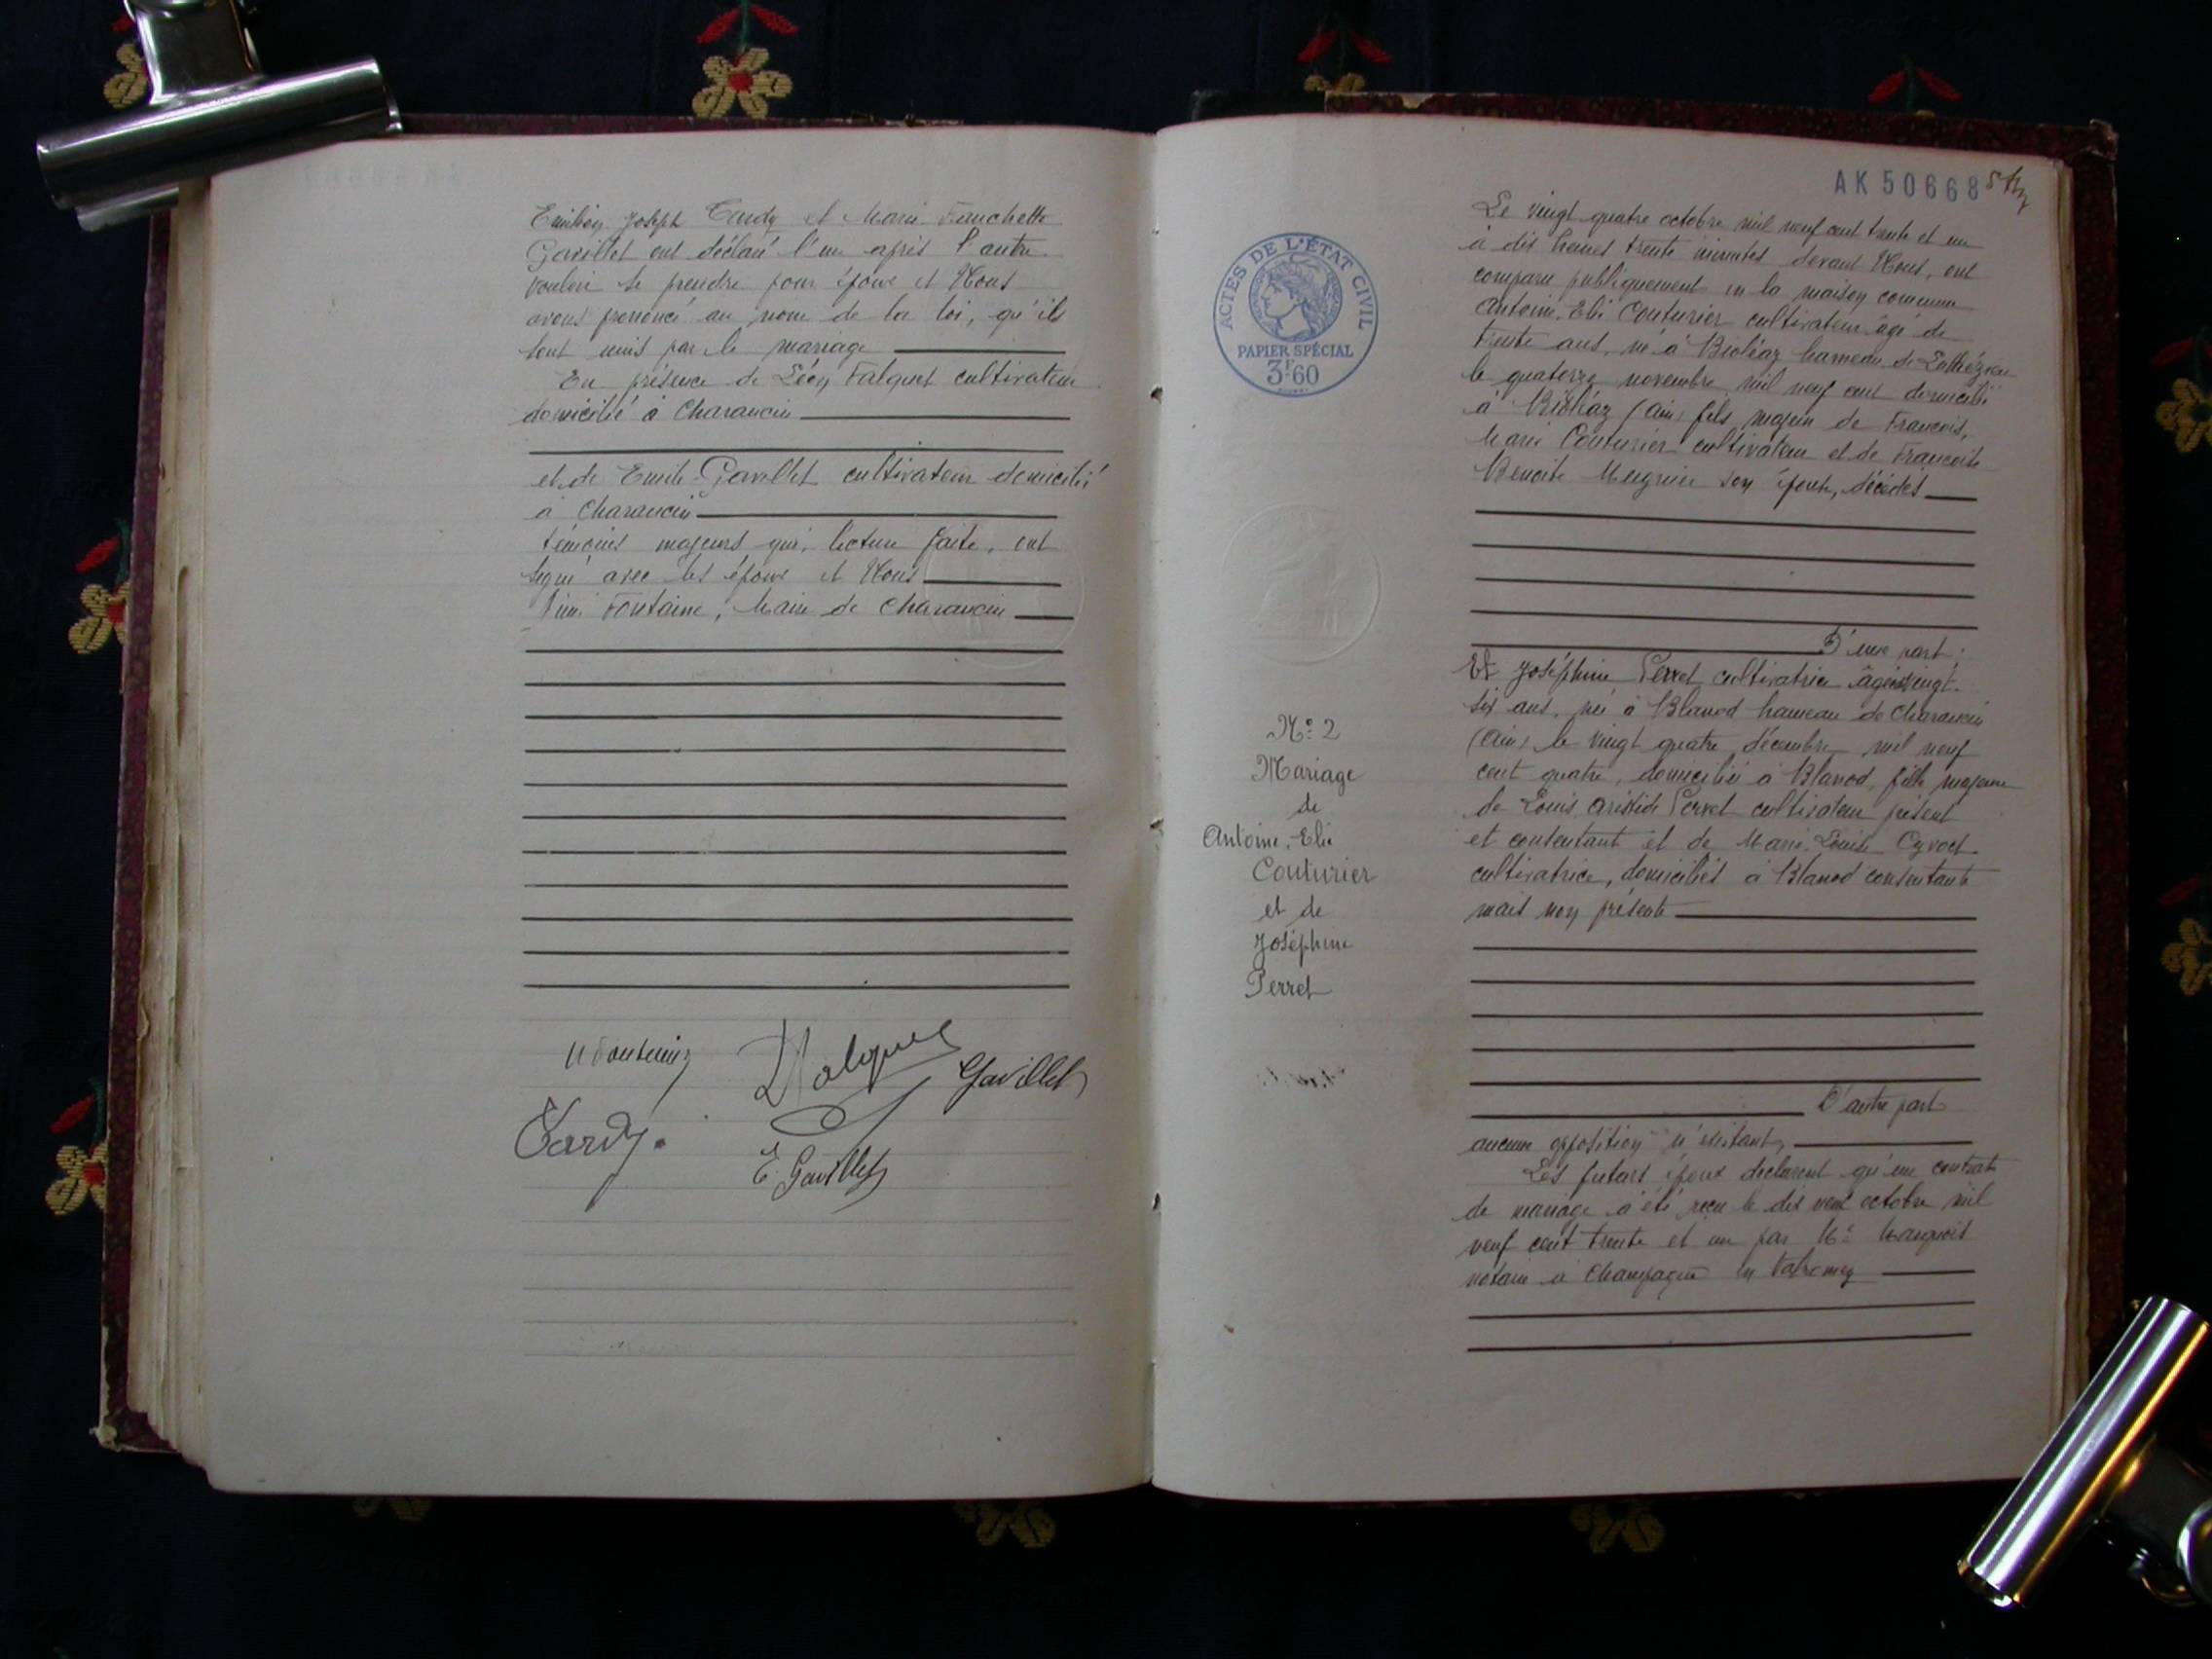 Emilien Joseph Tardy et Marie Fanchette
Gavillet ont déclaré l'un après l'autre
vouloir se prendre pour époux et Nous
avons prononcé au nom de la loi, qu'ils
sont unis par le mariage
En présence de Léon Falquet cultivateur
domicilié à Charancin
et de Emile Gavillet cultivateur domicilié
à Charancin
témoins majeurs qui, lecture faite, ont
signé avec les époux et Nous
Fontaine, Maire de Charancin
Fontaine
Falquet
Gavillet
Tardy.
E. Gavillet
AK 50668
ACTES DE L'ÉTAT CIVIL
PAPIER SPÉCIAL
3F60
N° 2
Mariage
de
Antoine, Elie
Couturier
et de
Joséphine
Perret
Le vingt quatre octobre mil neuf cent trente et un
à dix heures trente minutes devant Nous, ont
comparu publiquement en la maison commune
Antoine, Elie Couturier cultivateur âgé de
trente ans, né à Béoléaz hameau de
le quatorze novembre mil neuf cent domicilié
à (Ain) fils majeur de François,
Marie Couturier cultivateur et de Françoise
Benoite Meugnier son épouse, décédés
D'une part;
Et Joséphine Perret cultivatrice âgée vingt-
six ans, née à Blanod hameau de Charancin
(Ain) le vingt quatre décembre mil neuf
cent quatre, domiciliée à Blanod, fille majeure
de Louis Aristide Perret cultivateur présent
et consentant et de Marie Louise Cyvoct
cultivatrice, domiciliés à Blanod consentante
mais non présente
D'autre part
aucune opposition n'existant,
Les futurs époux déclarent qu'un contrat
de mariage a été reçu le dix neuf octobre mil
neuf cent trente et un par Me Mangeois
notaire à Champagne en Valromey